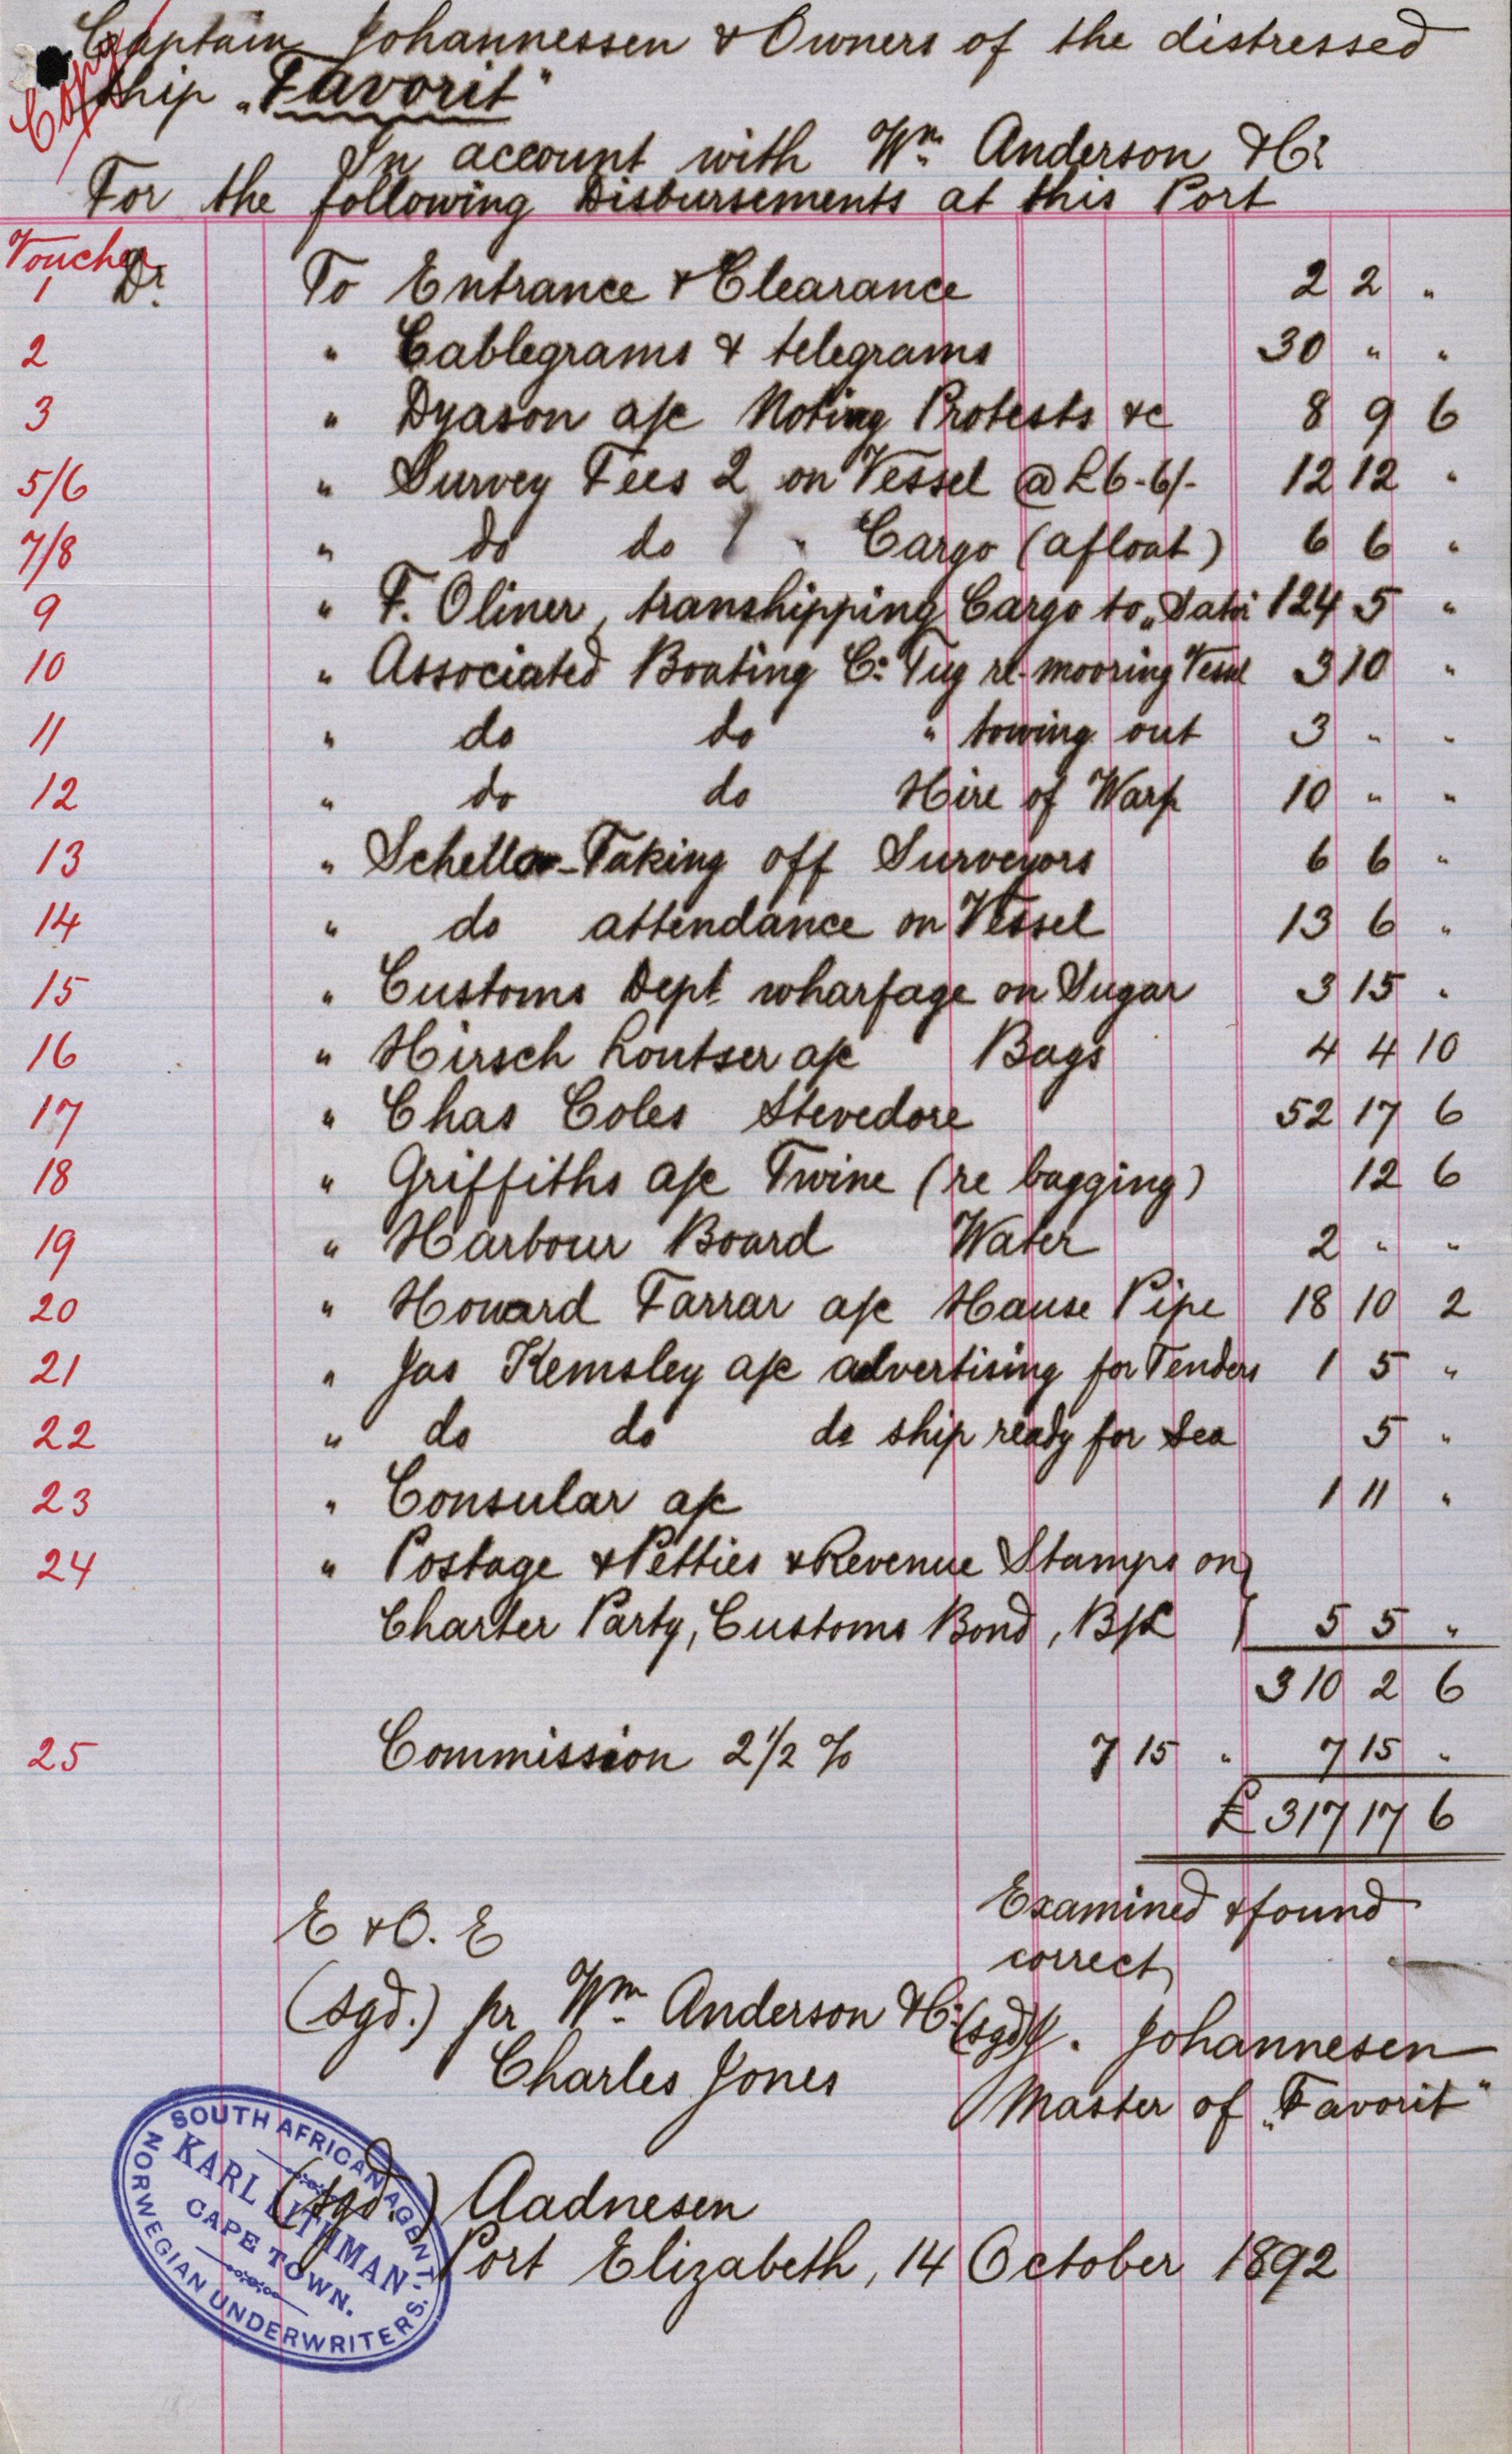 Copy
Captain Johannessen & Owners of the distressed
ship „Favorit"
In account with Wm. Anderson & Co
For the following Disbursements at this Port
Voucher
1 Dr. To Entrance & Clearance 2 2 "
2 " Cablegrams & telegrams 30 " "
3 " Dyason a/c Noting Protests &c 8 9 6
5/6 " Survey Fees 2 on Vessel @ £6-6/- 12 12 "
7/8 " do do 1 " Cargo (afloat) 6 6 "
9 " F. Oliner, transhipping Cargo to 124 5 "
10 " Associated Boating Co: Tug re-mooring Vessel 3 10 "
11 " do do " towing out 3 " "
12 " do do Hire of Warp 10 " "
13 " Taking off Surveyors 6 6 "
14 " do attendance on Vessel 13 6 "
15 " Customs Dept wharfage on Sugar 3 15 "
16 " Hirsch Loutser a/c Bags 4 4 10
17 " Chas Coles Stevedore 52 17 6
18 " Griffiths a/c Twine (re bagging) 12 6
19 " Harbour Board Water 2 " "
20 " Howard Farrar a/c Hause Pipe 18 10 2
21 " Jas Kemsley a/c advertising for Tenders 1 5 "
22 " do do do ship ready for Sea 5 "
23 " Consular a/c 1 11 "
24 " Postage & Petties & Revenue Stamps on
Charter Party, Customs Bond, B/L 5 5 "
310 2 6
25 Commission 2 1/2 % 7 15 " 7 15 "
£ 317 17 6
E & O. E
Examined & found
correct
(sgd.) pr Wm. Anderson & Co:
Charles Jones
(sgd) J. Johannesen
Master of „Favorit"
(sgd.) Aadnesen
Port Elizabeth, 14 October 1892
SOUTH AFRICAN AGENT.
KARL LITHMAN
CAPE TOWN.
NORWEGIAN UNDERWRITERS.